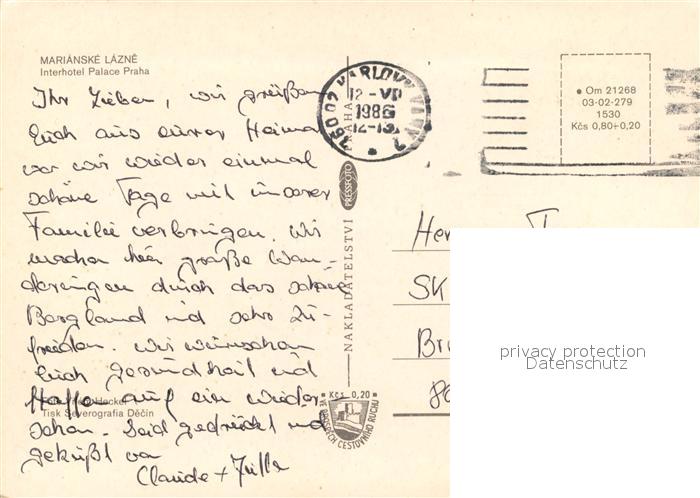 MARIÁNSKÉ LÁZNĚ
Interhotel Palace Praha
Ihr Lieben, wir grüßen
Euch aus eurer Heimat
wo wir wieder einmal
schöne Tage mit unserer
Familie verbringen. Wir
machen hier große Wan-
derungen durch das schöne
Bergland und sehr zu-
frieden. Wir wünschen
Euch Gesundheit und
auf ein wieder-
sehen. Seid gedrückt und
geküßt von
Claude +
Tisk Severografia Děčín
36002 KARLOVY VARY 2
12.-VI
1986
NAKLADATELSTVÍ
PRESSFOTO
PRAHA
Kčs 0,20
VE PROSPĚCH CESTOVNÍHO RUCHU
Om 21268
03-02-279
1530
Kčs 0,80+0,20
SK
privacy protection
Datenschutz